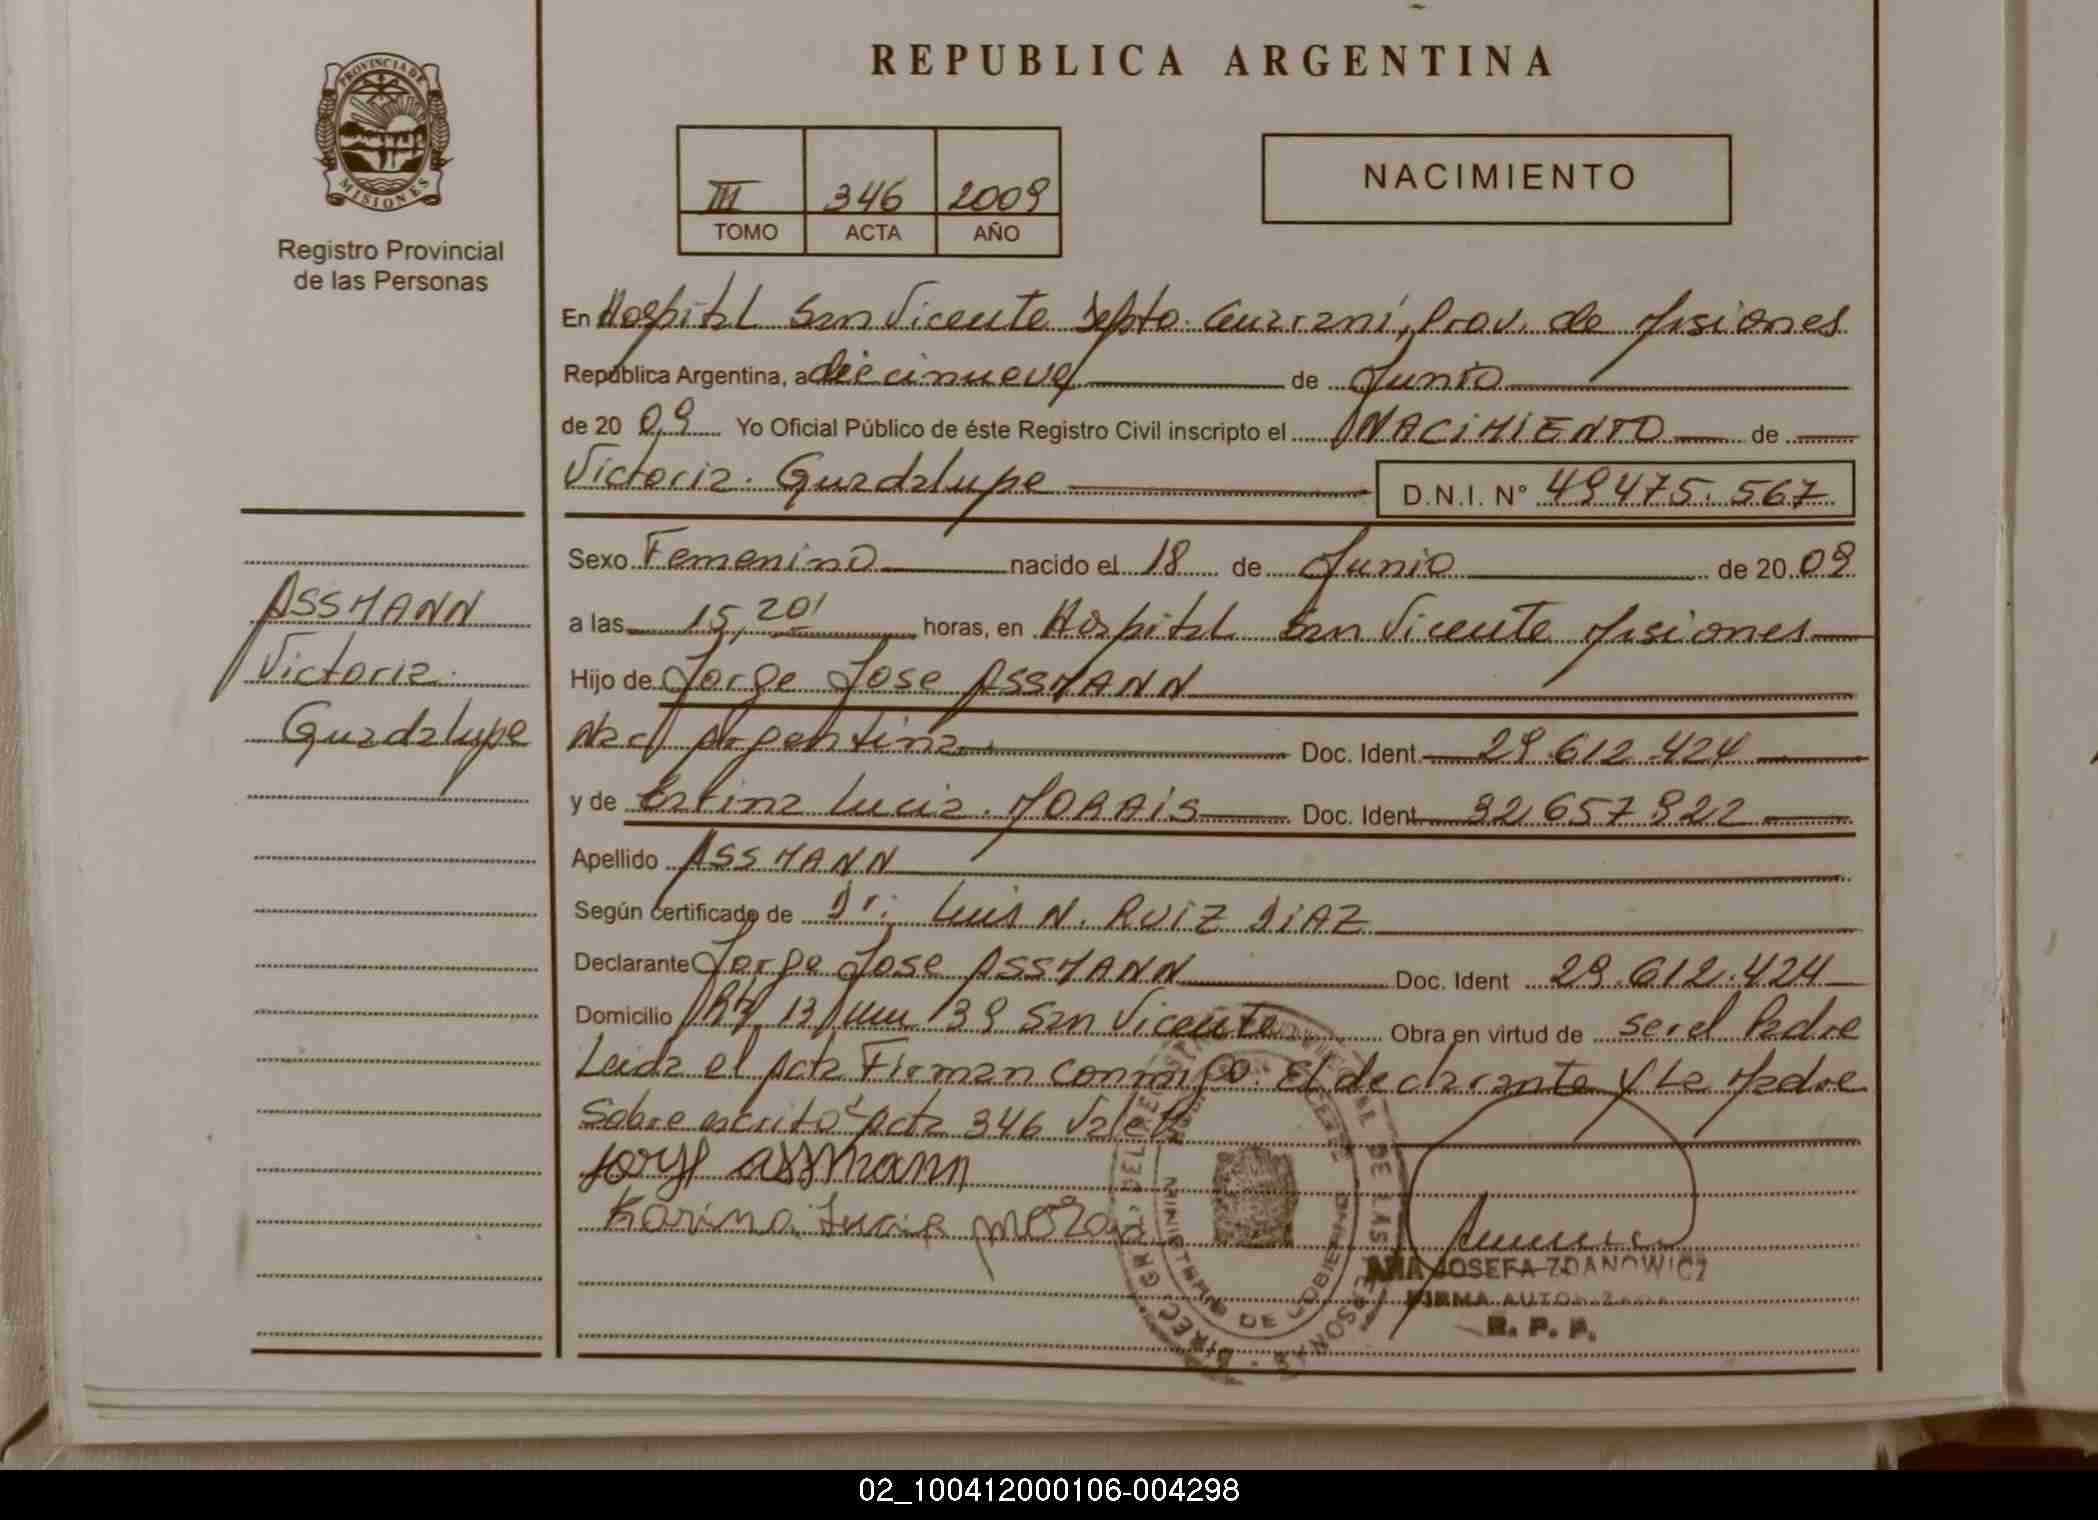 REPUBLICA ARGENTINA
PROVINCIA DE
MISIONES
Registro Provincial
de las Personas
III 346 2009
TOMO ACTA AÑO
NACIMIENTO
En Hospital San Vicente Depto. Guaraní, Prov. de Misiones
República Argentina, a diecinueve de Junio
de 20 09 Yo Oficial Público de éste Registro Civil inscripto el NACIMIENTO de
Victoria Guadalupe D.N.I. N° 49475.567
Sexo Femenino nacido el 18 de Junio de 20 09
a las 15,20' horas, en Hospital San Vicente Misiones
Hijo de Jorge Jose ASSMANN
Nac Argentina Doc. Ident. 29.612.424
y de Lucia MORAIS Doc. Ident. 32 657 922
Apellido ASSMANN
Según certificado de Dr. Luis N. RUIZ DIAZ
Declarante Jorge Jose ASSMANN Doc. Ident 29.612.424
Domicilio 13 39 San Vicente Obra en virtud de ser el Padre
Leida el Acta Firman conmigo El declarante y La Madre
Sobre escrito Acta 346 Vale
Jorge assmann
Karina Lucia
ASSMANN
Victoria
Guadalupe
MINISTERIO DE GOBIERNO
ANA JOSEFA ZDANOWICZ
FIRMA AUTORIZADA
R. P. P.
02_100412000106-004298